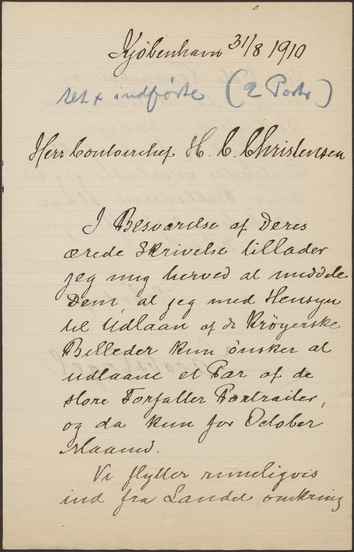 Kjøbenhavn 31/8 1910
ret & indførte (2 Portr)
Herr Contorchef H. C. Christensen
I Besvarelse af Deres
ærede Skrivelse tillader
jeg mig herved at meddele
Dem at jeg med Hensyn
til Udlaan af de Krøyerske
Billeder kun ønsker at
udlaane et Par af de
store Forfatter Portraiter,
og da kun for October
Maaned.
Vi flytter rimeligvis
ind fra Landet omkring